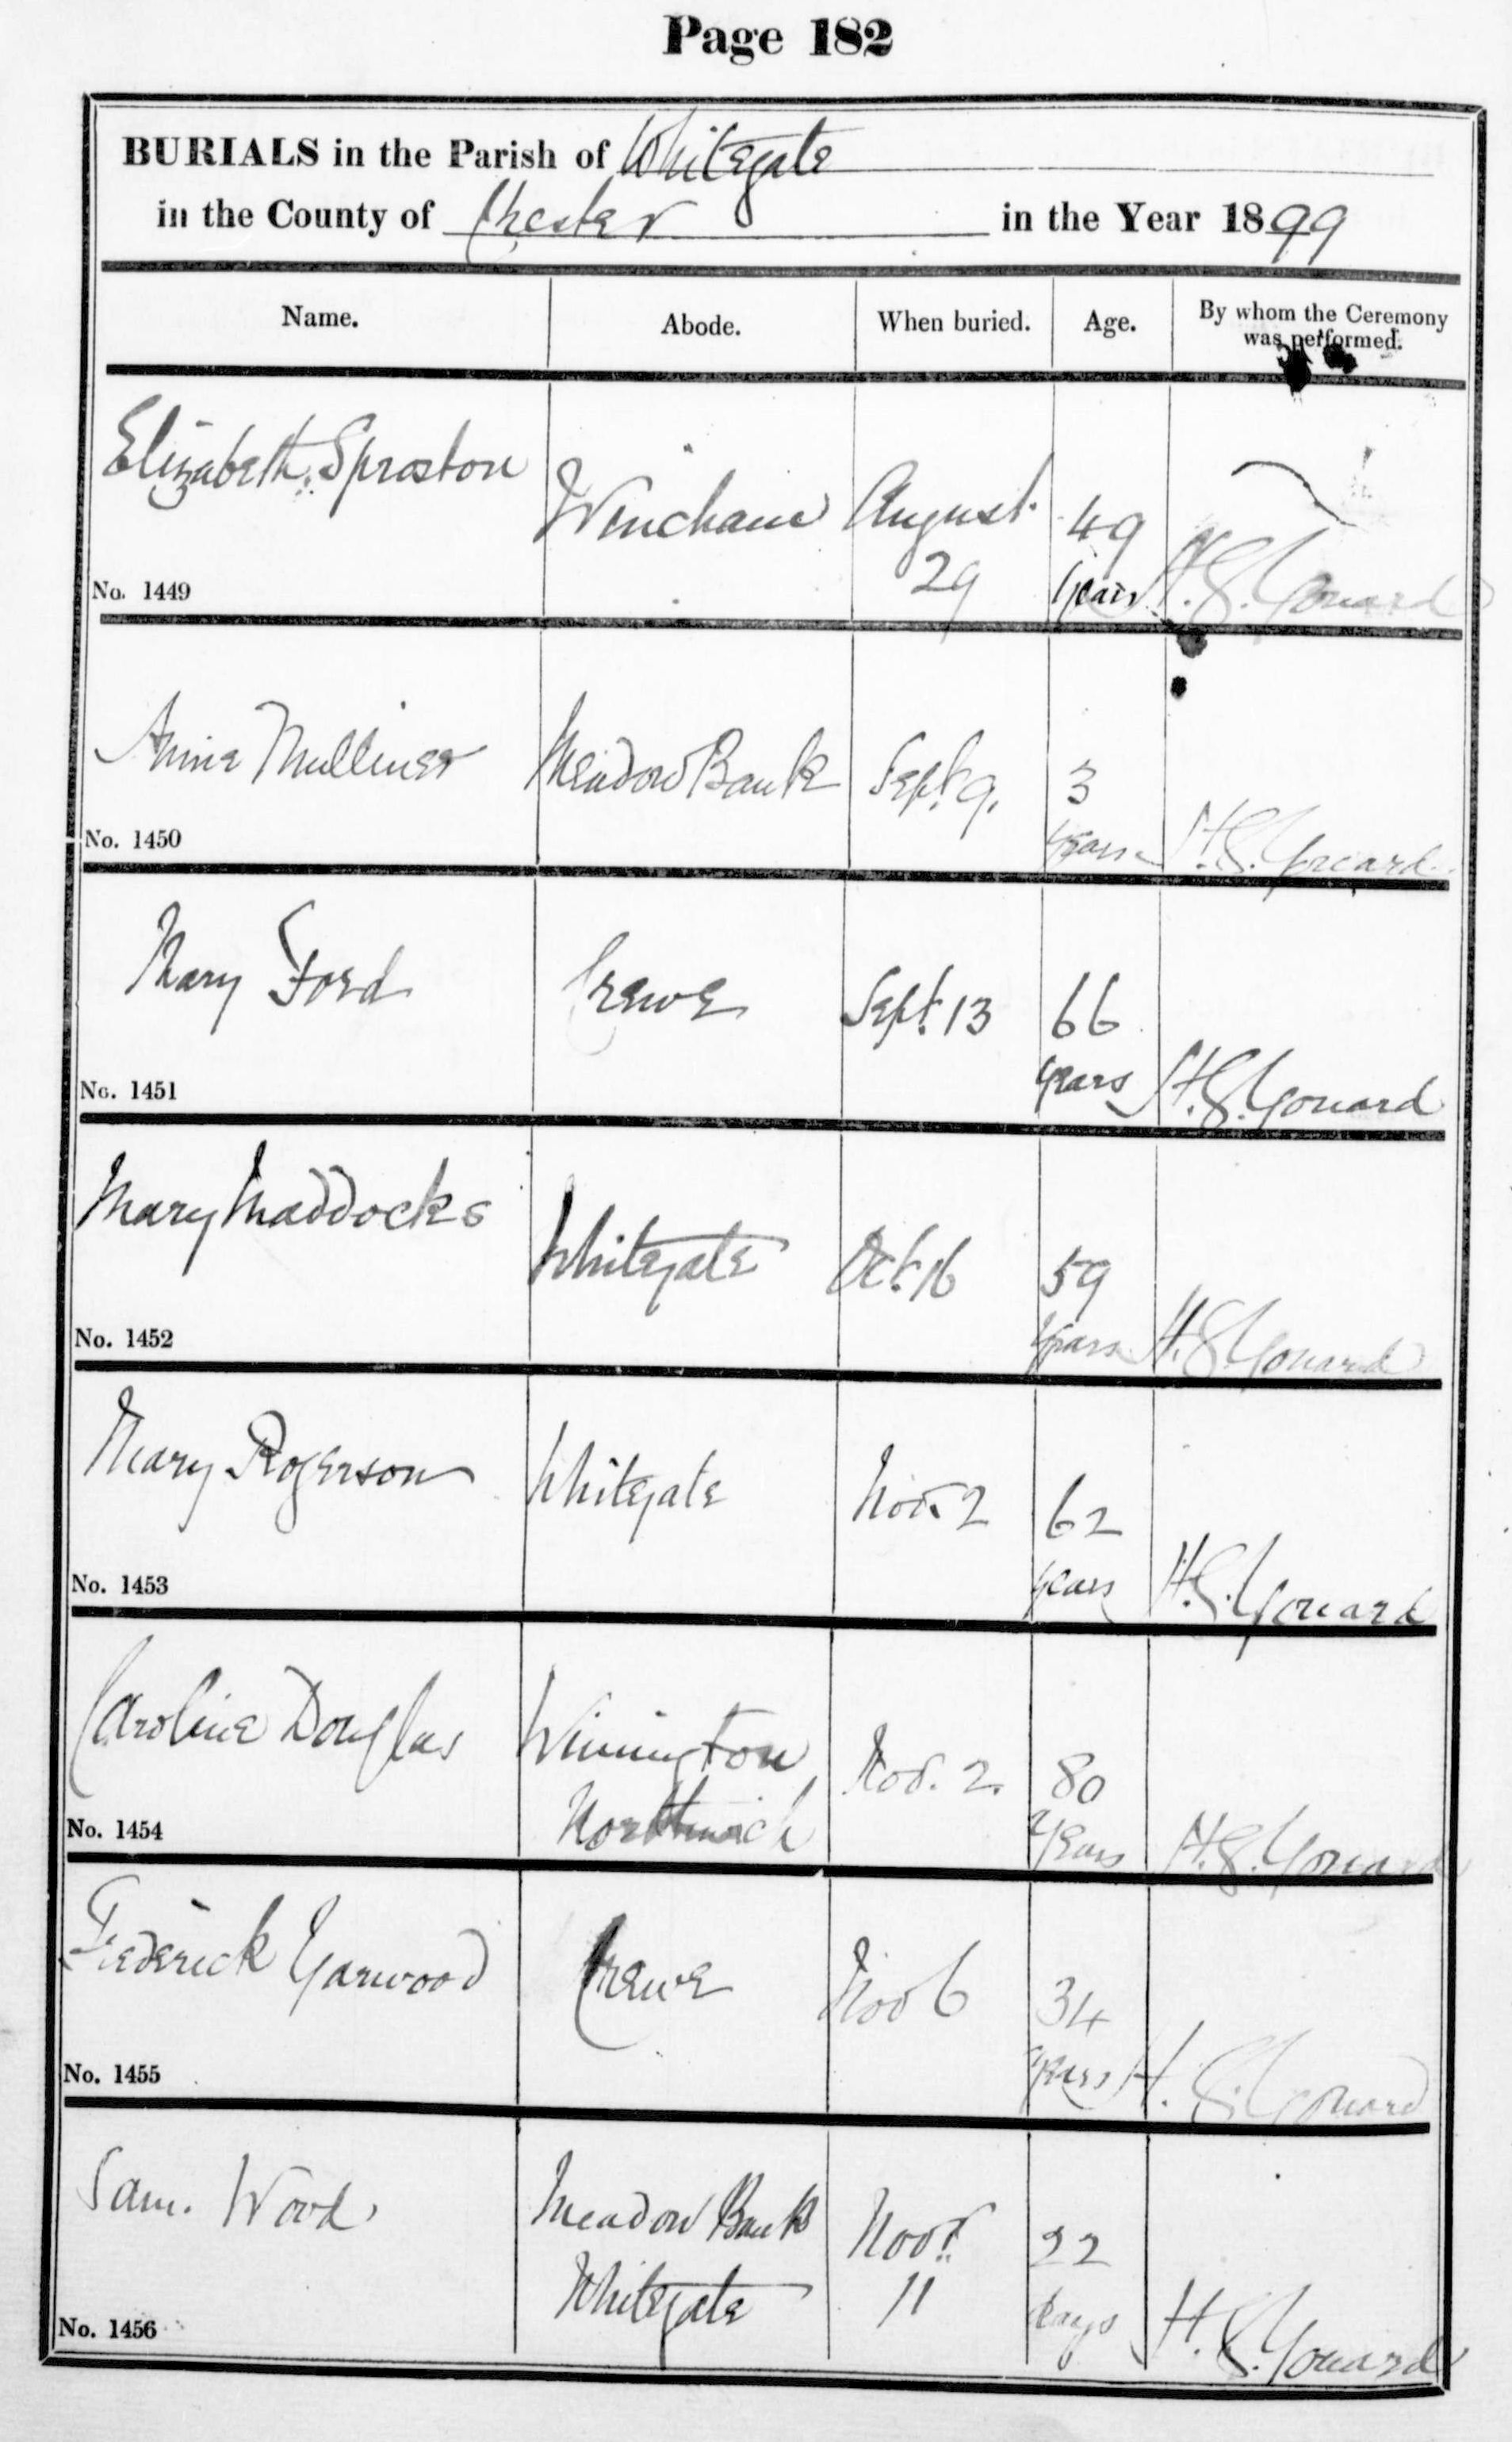 Page 182
BURIALS in the Parish of Whitegate
in the County of Chester in the Year 1899
Name. Abode. When buried. Age. By whom the Ceremony
was performed.
Elizabeth Sproston
Wincham August 49
29 years H. G. Youard
No. 1449
Annie Mulliner Meadow Bank Sept. 9. 3
years H. G. Youard
No. 1450
Mary Ford Crewe Sept. 13 66
years H. G. Youard
No. 1451
Mary Maddocks
Whitegate Oct. 16 59
years H. G. Youard
No. 1452
Mary Rogerson Whitegate Nov. 2 62
years H. G. Youard
No. 1453
Caroline Douglas Winnington Nov. 2. 80
Northwich years H. G. Youard
No. 1454
Frederick Garwood Crewe Nov 6 34
years H. G. Youard
No. 1455
Sam. Wood Meadow Bank Novr 22
Whitegate 11 days H. G. Youard
No. 1456